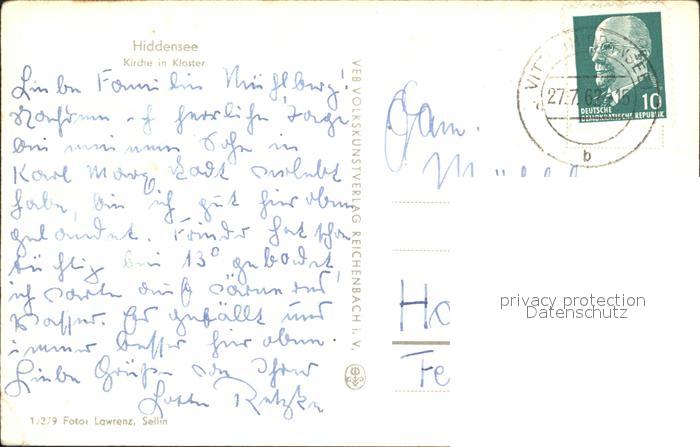 Hiddensee
Kirche in Kloster
Liebe Familie Mühlberg!
Nachdem ich herrliche Tage
bei meinem Sohn in
Karl Marx Stadt verlebt
habe, bin ich gut hier oben
gelandet. Frieder hat schon
tüchtig bei 13° gebadet,
ich warte auf wärmeres
Wasser. Es gefällt uns
immer besser hier oben.
Liebe Grüße von Ihrer
Lotte
1/279 Foto: Lawrenz, Sellin
VEB VOLKSKUNSTVERLAG REICHENBACH i. V.
27.7.6
b
10
DEUTSCHE
DEMOKRATISCHE REPUBLIK
Fam.
Ho
Fe
privacy protection
Datenschutz